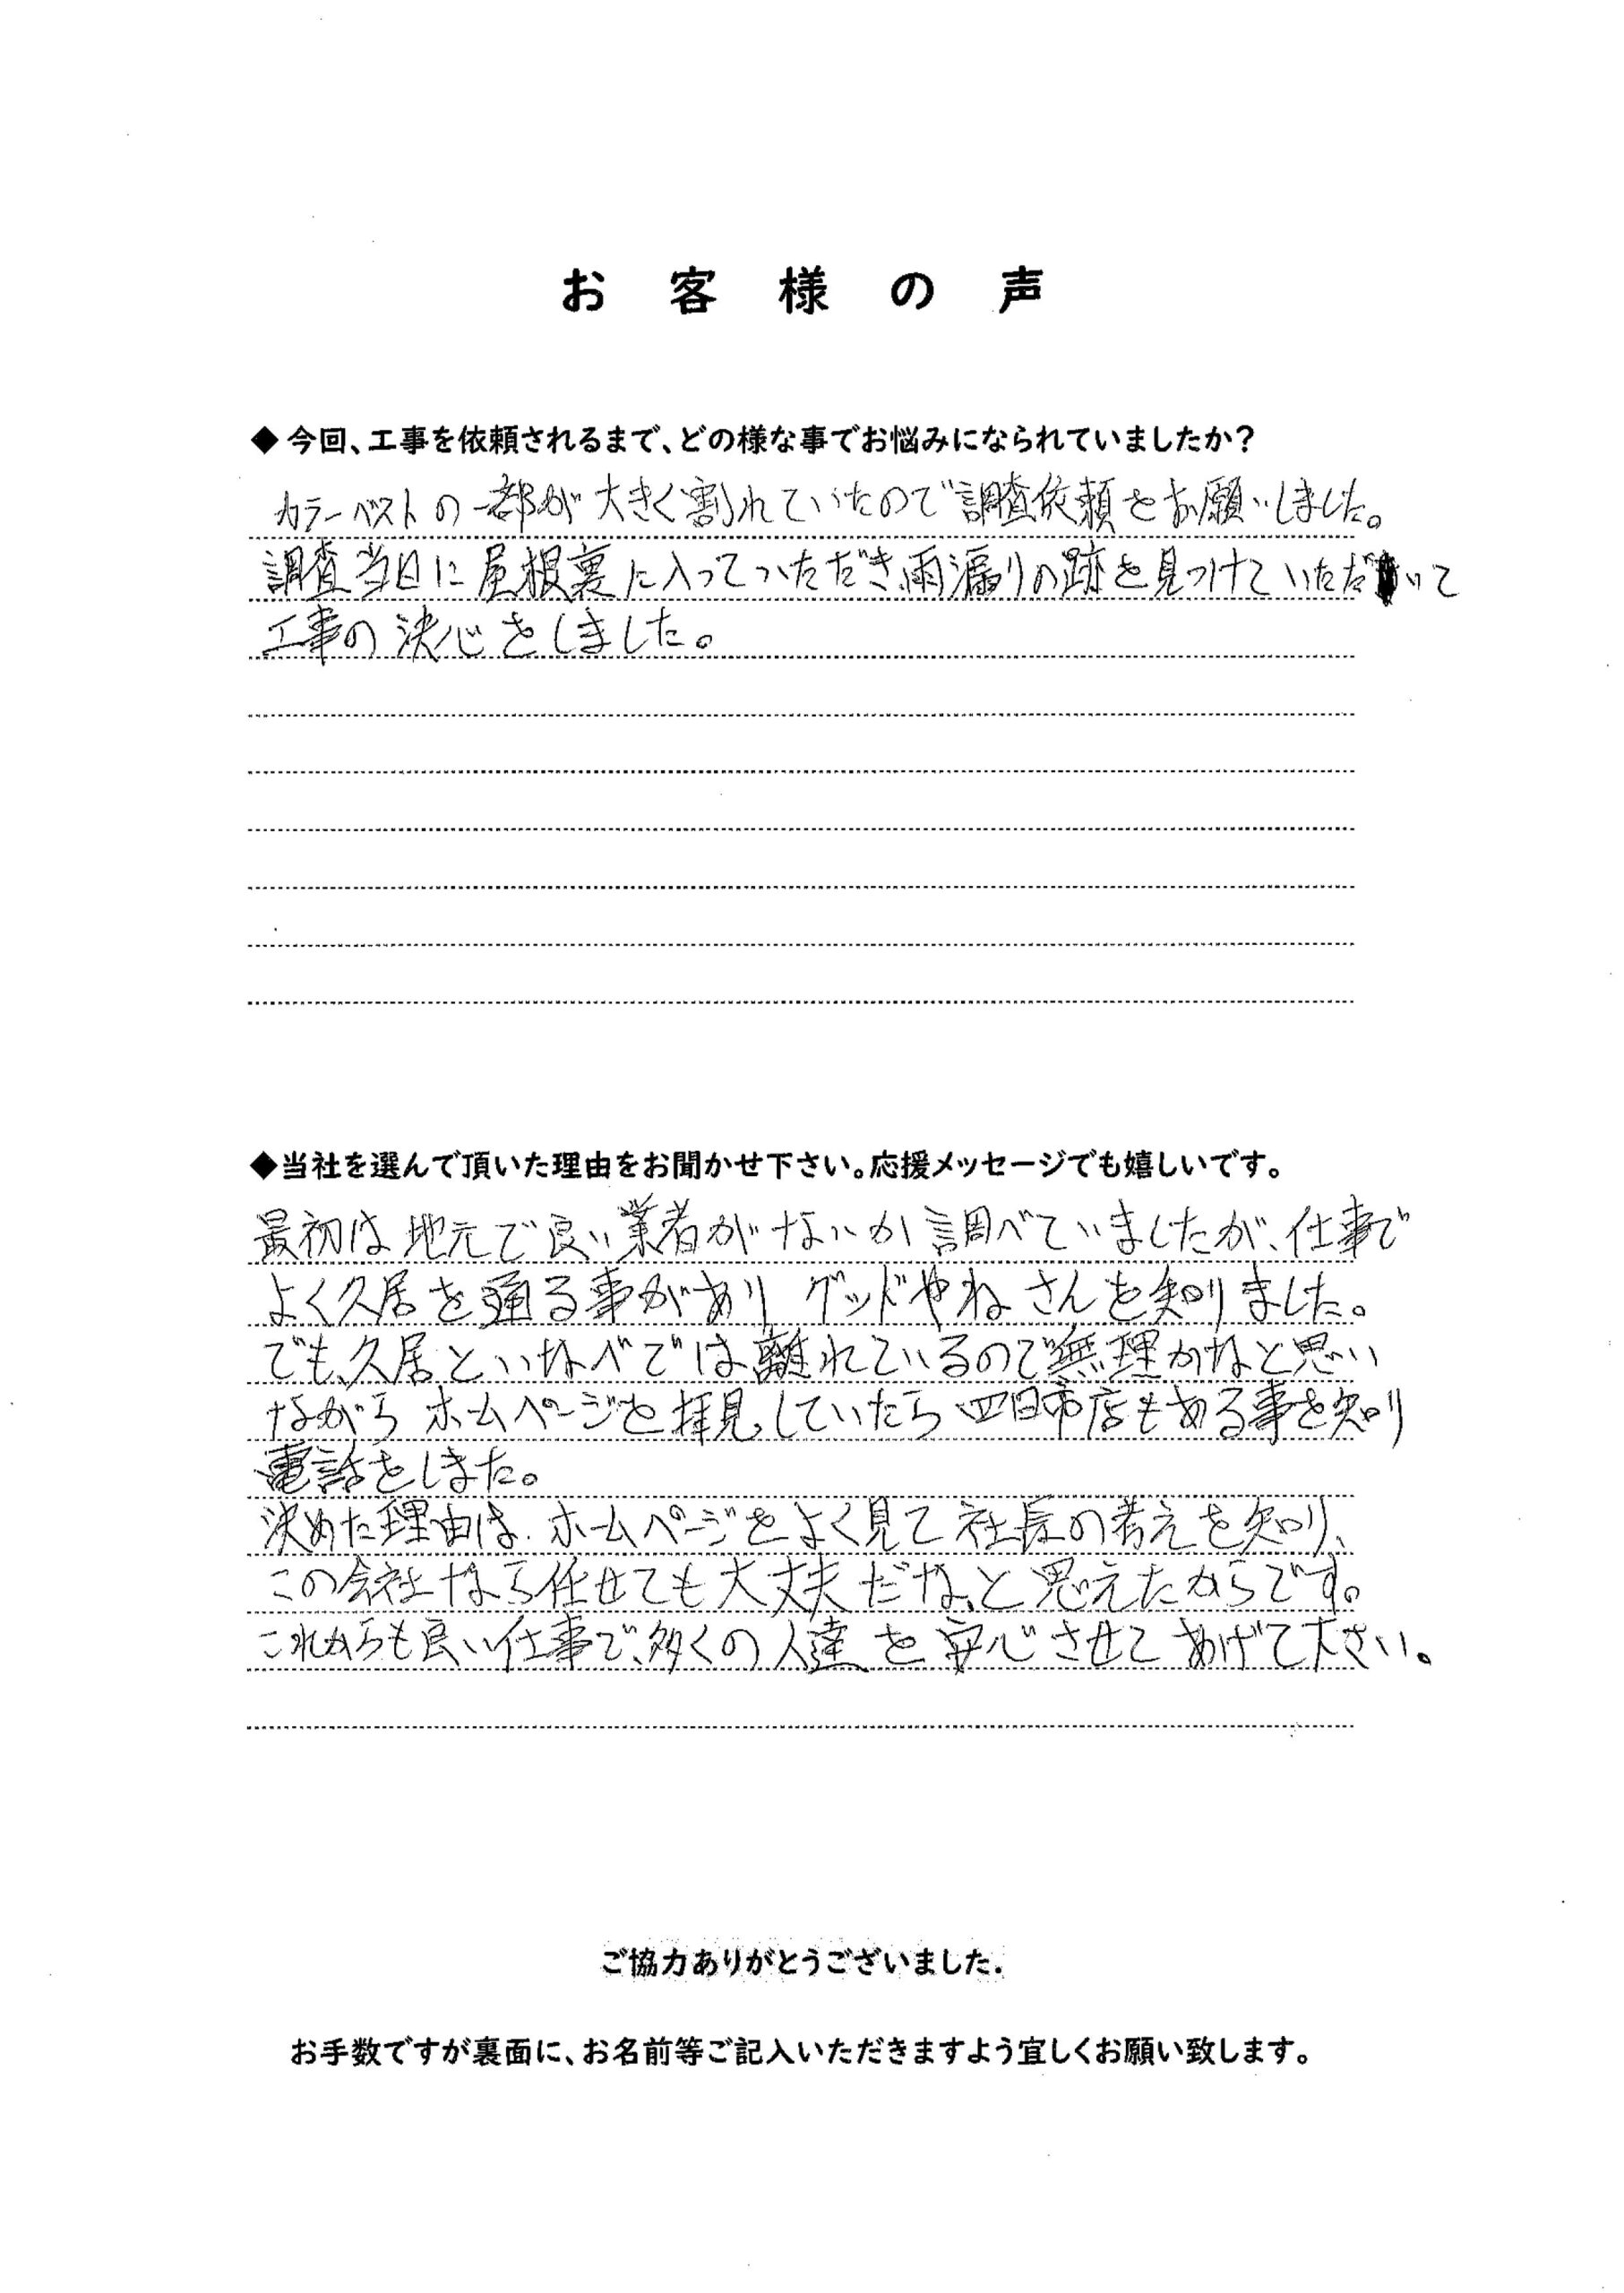 お客様の声
◆今回、工事を依頼されるまで、どの様な事でお悩みになられていましたか?
カラーベストの一部が大きく割れていたので調査依頼をお願いしました。
調査当日に屋根裏に入っていただき、雨漏りの跡を見つけていただいて
工事の決心をしました。
◆当社を選んで頂いた理由をお聞かせ下さい。応援メッセージでも嬉しいです。
最初は地元で良い業者がないか調べていましたが、仕事で
よく久居を通る事があり グッドやねさんを知りました。
でも、久居といなべでは離れているので無理かなと思い
ながら ホームページを拝見していたら 四日市店もある事を知り
電話をしました。
決めた理由は、ホームページをよく見て社長の考えを知り、
この会社なら任せても大丈夫だな、と思えたからです。
これからも良い仕事で、多くの人達を安心させてあげて下さい。
ご協力ありがとうございました.
お手数ですが裏面に、お名前等ご記入いただきますよう宜しくお願い致します。